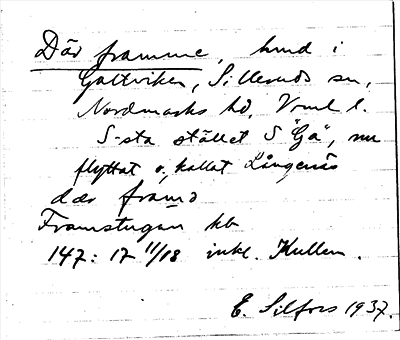 Där framme, hmd i
Galtviken, Silleruds sn,
Nordmarks hd, Vrml l.
S-sta stället S "Ga", nu
flyttat o. kallat Långenäs
dær
Framstugan kb
147: 17 11/18 inkl. Kullen.
E. Silfors 1937.